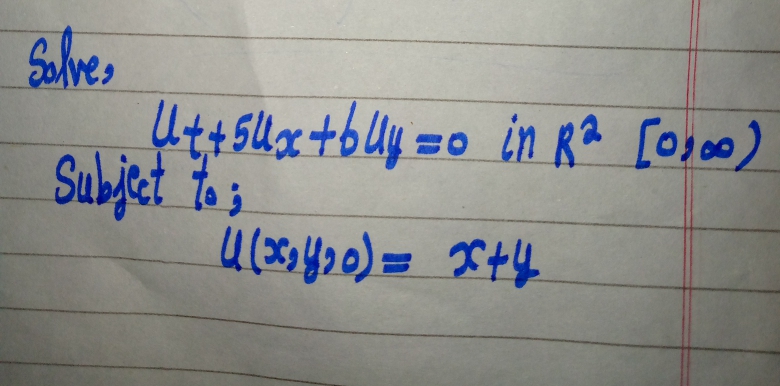 Solve,
Ut+5Ux+6Uy=0 in R² [0,∞)
Subject to;
U(x,y,0)= x+y